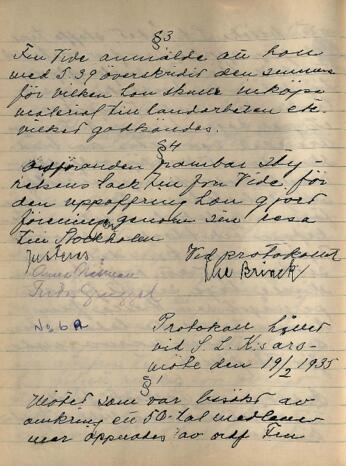 §3
Fru Vide anmälde att hon
med 5.39 överskridit den summa
för vilken hon skulle inköpa
material till handarbeten etc
vilket godkändes.
§4
Ordföranden frambar sty-
relsens tack till fru Vide, för
den uppoffring hon gjort
föreningen genom sin resa
till Stockholm
Justeras Vid protokollet
Anna Elsa Brinck
No 6 A
Protokoll hållet
vid S. L. K:s års-
möte den 19/2 1935
§1
Mötet som var besökt av
omkring ett 50-tal medlem-
mar öppnades av ordf Fru